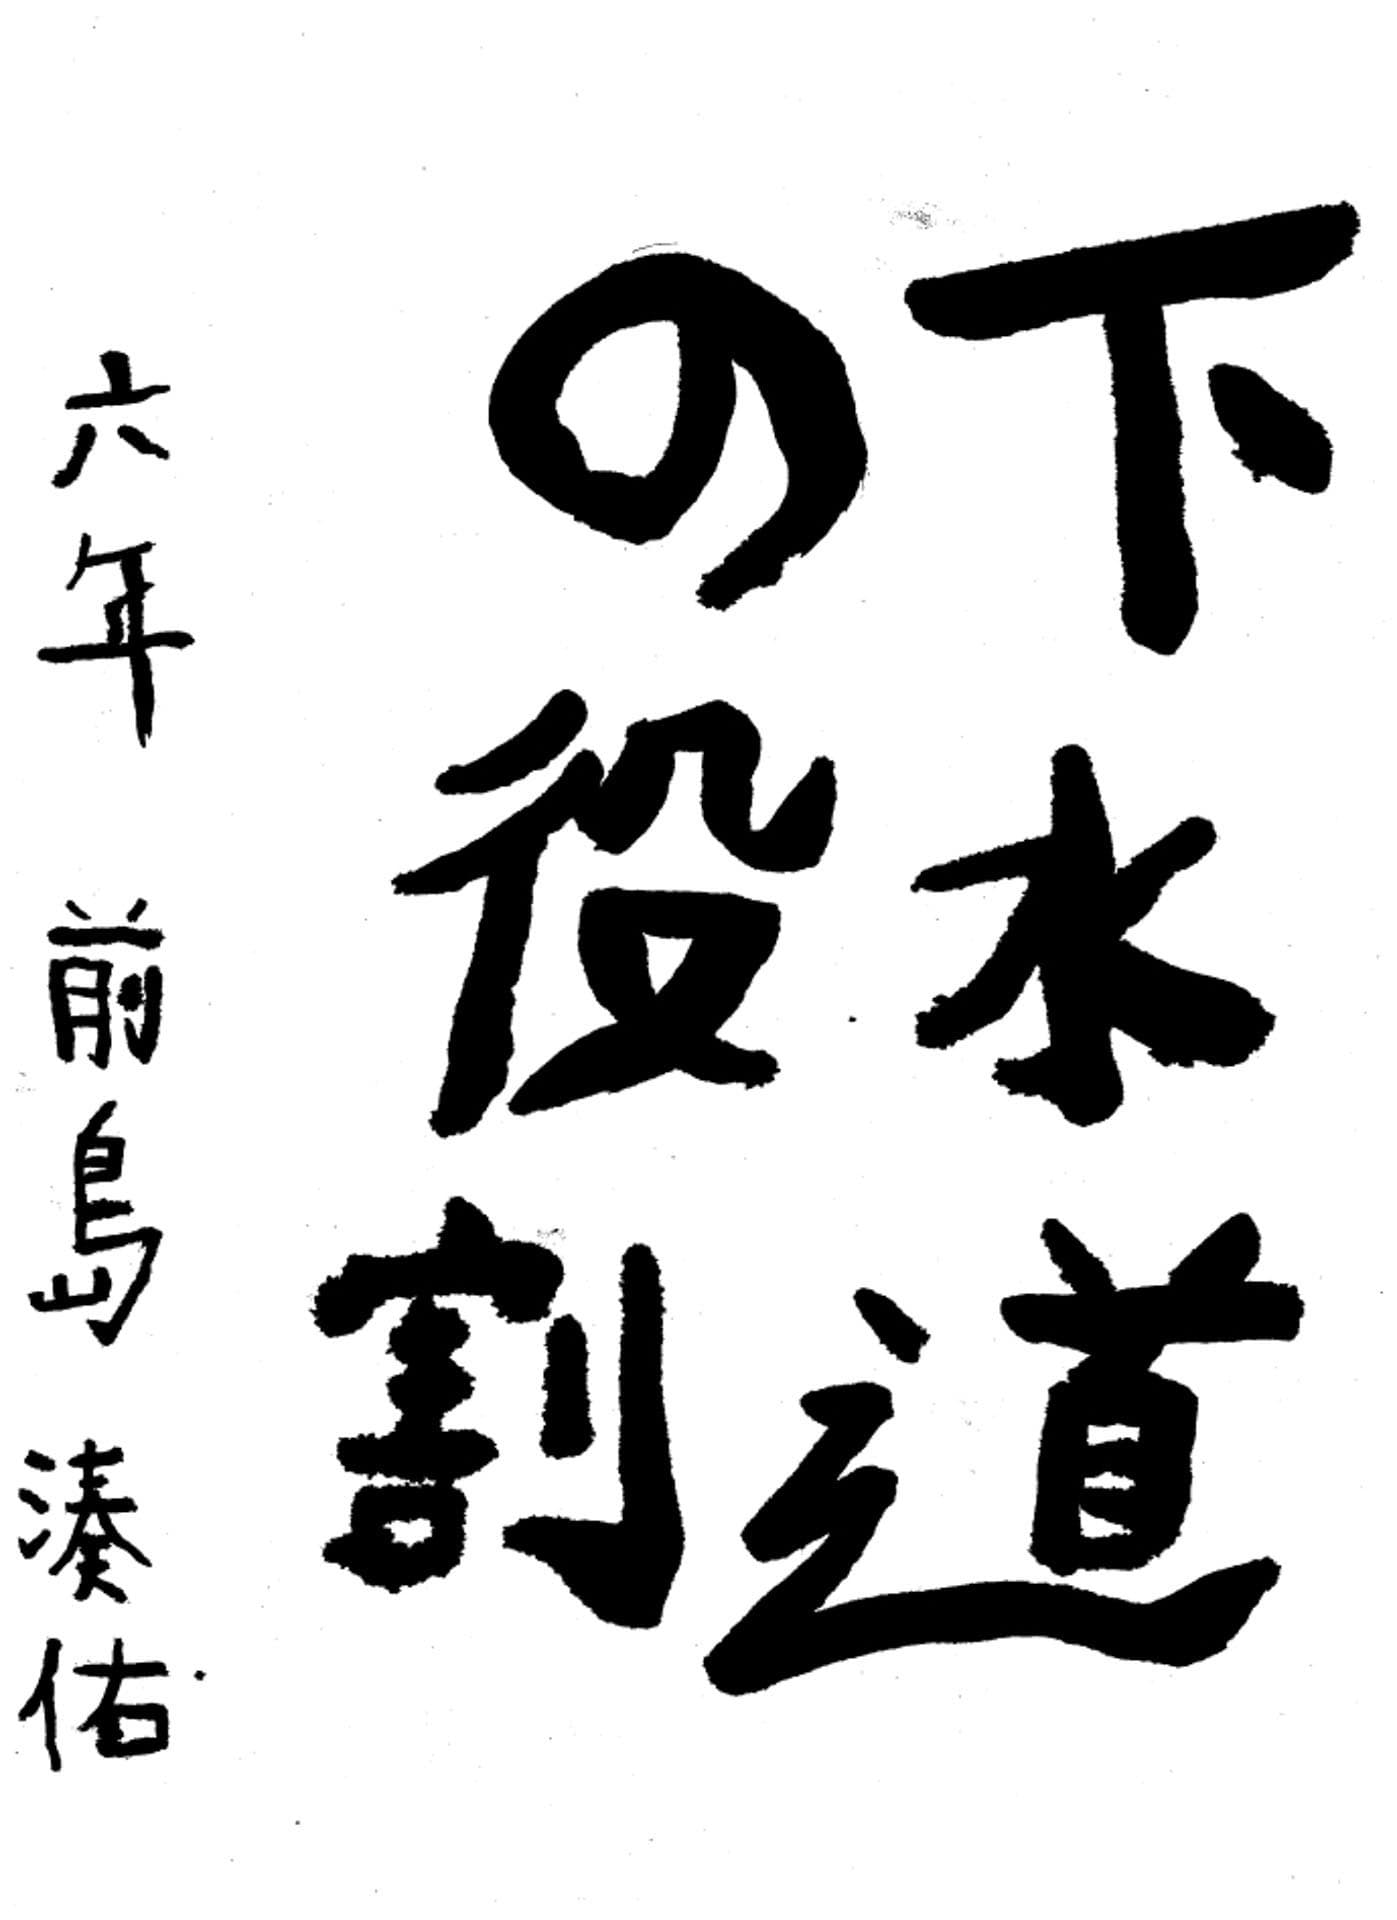 下水道
の役割
六年 前島 湊佑